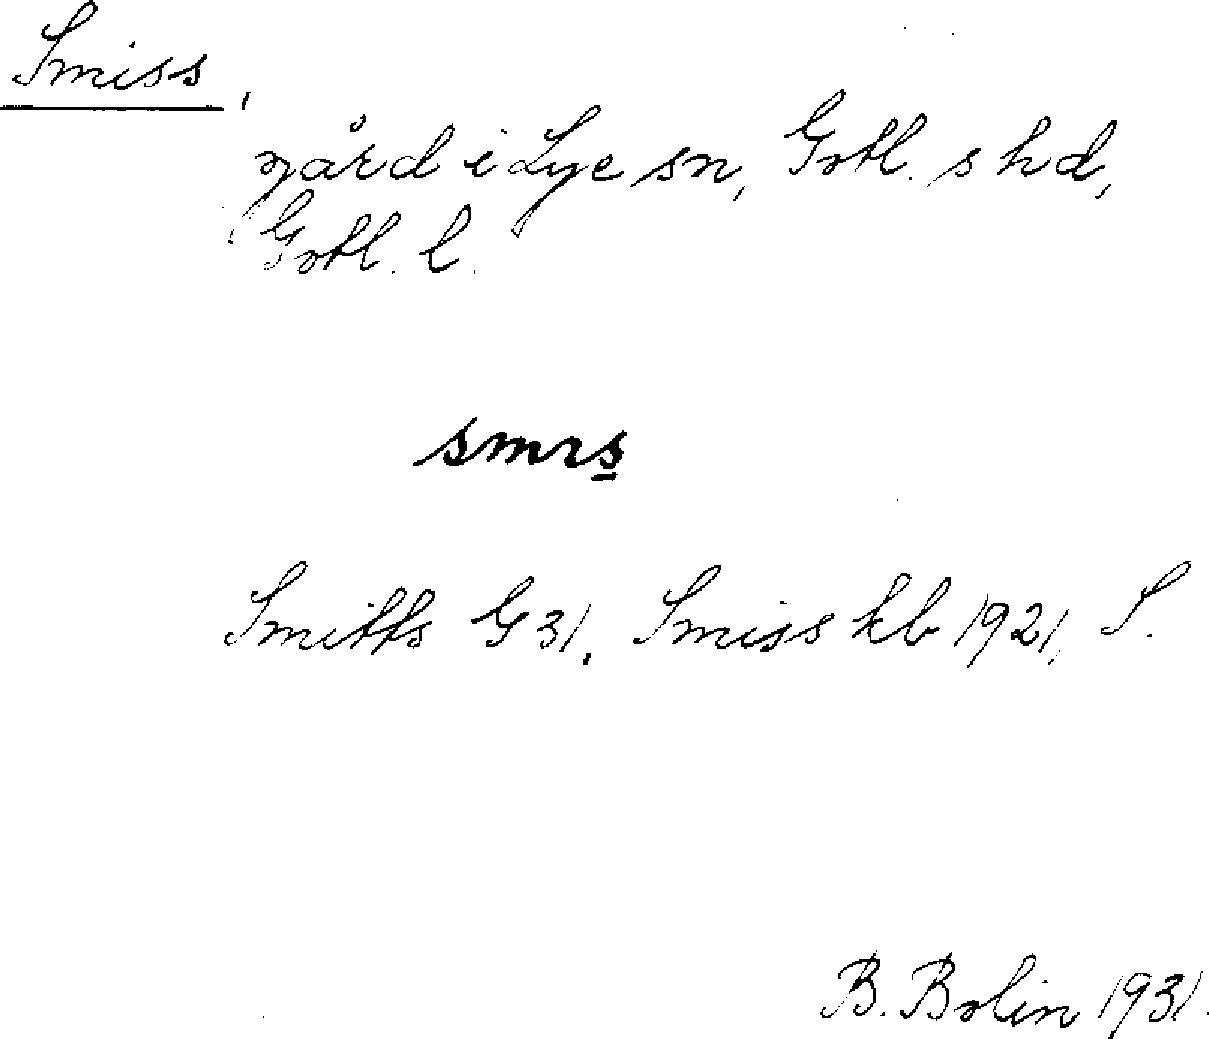 Smiss,
gård i Lye sn, Gotl. s hd,
Gotl. l.
smɪs̲
Smitts G 31. Smiss kb 1921, S.
B. Bolin 1931.